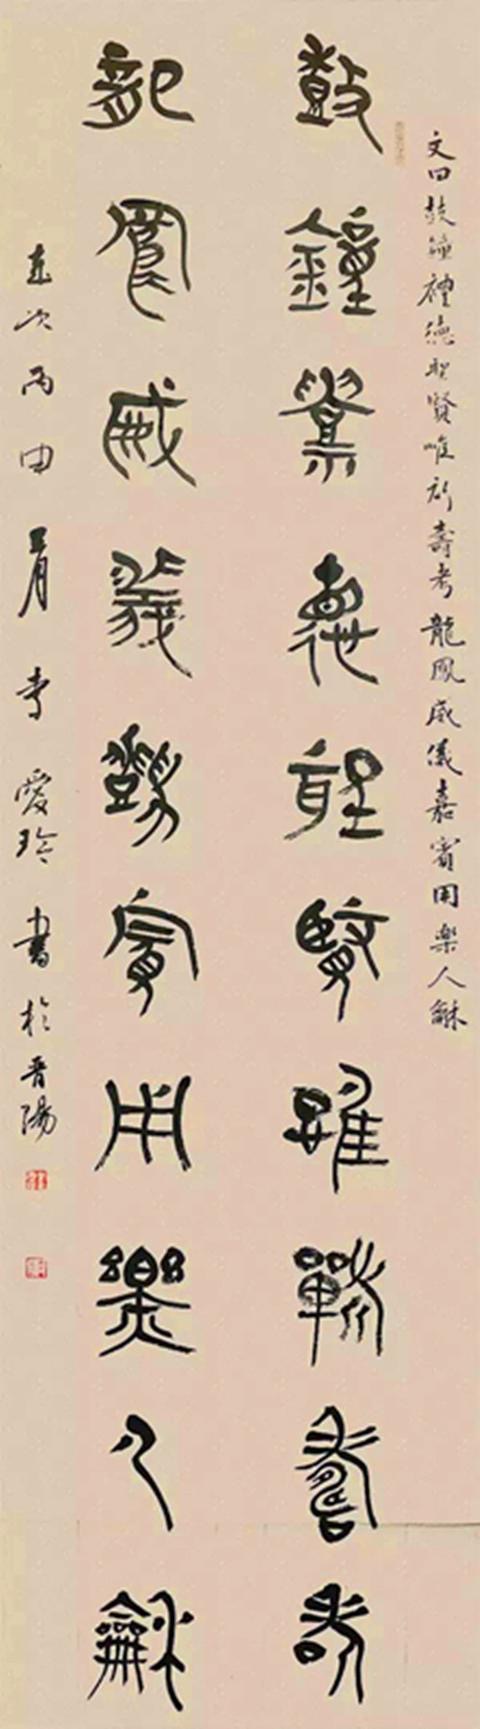 文曰鼓鐘禮德聖賢唯祈壽考龍鳳威儀嘉賓用樂人龢
鼓鐘禮德聖賢唯祈壽考
龍鳳威義嘉賓用樂人龢
歲次丙申李愛玲書於晋陽